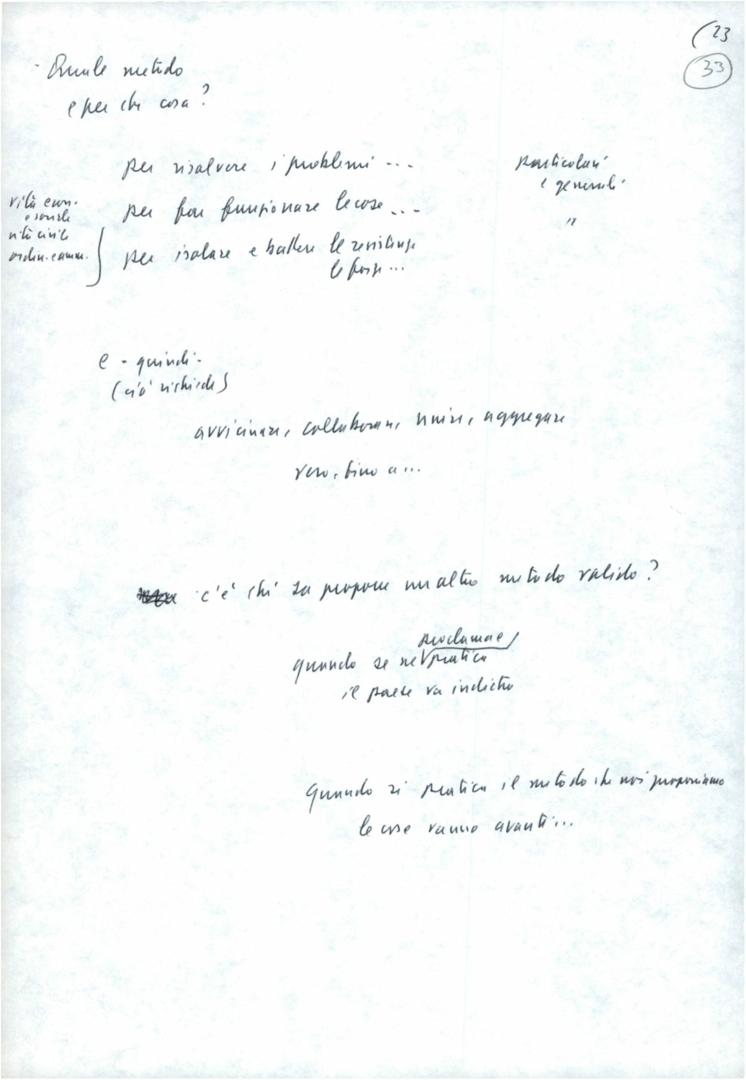 (23
33
Quale metodo
e per che cosa?
per risolvere i problemi ... particolari
e generali
per far funzionare le cose ... "
vita econ.
e sociale
vita civile
ordin. comm.
per isolare e battere le resistenze
le forze ...
e - quindi -
(ciò richiede)
avvicinare, collaborare, unire, aggregare
vero, fino a ...
c'è chi sa proporre un altro metodo valido?
proclama e
quando se ne pratica
il paese va indietro
Quando si pratica il metodo che noi proponiamo
le cose vanno avanti ...